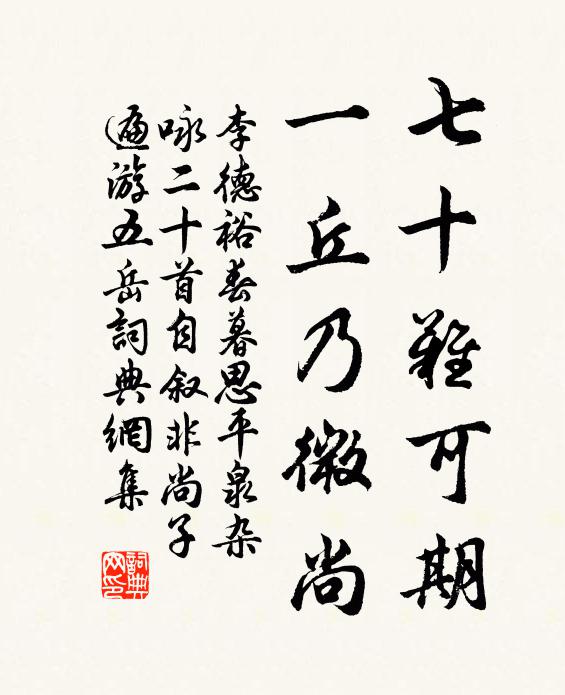 七十難可期
一丘乃微尚
李德裕春暮思平泉杂
咏二十首自叙非尚子
遍游五岳詞典網集
詞典網印